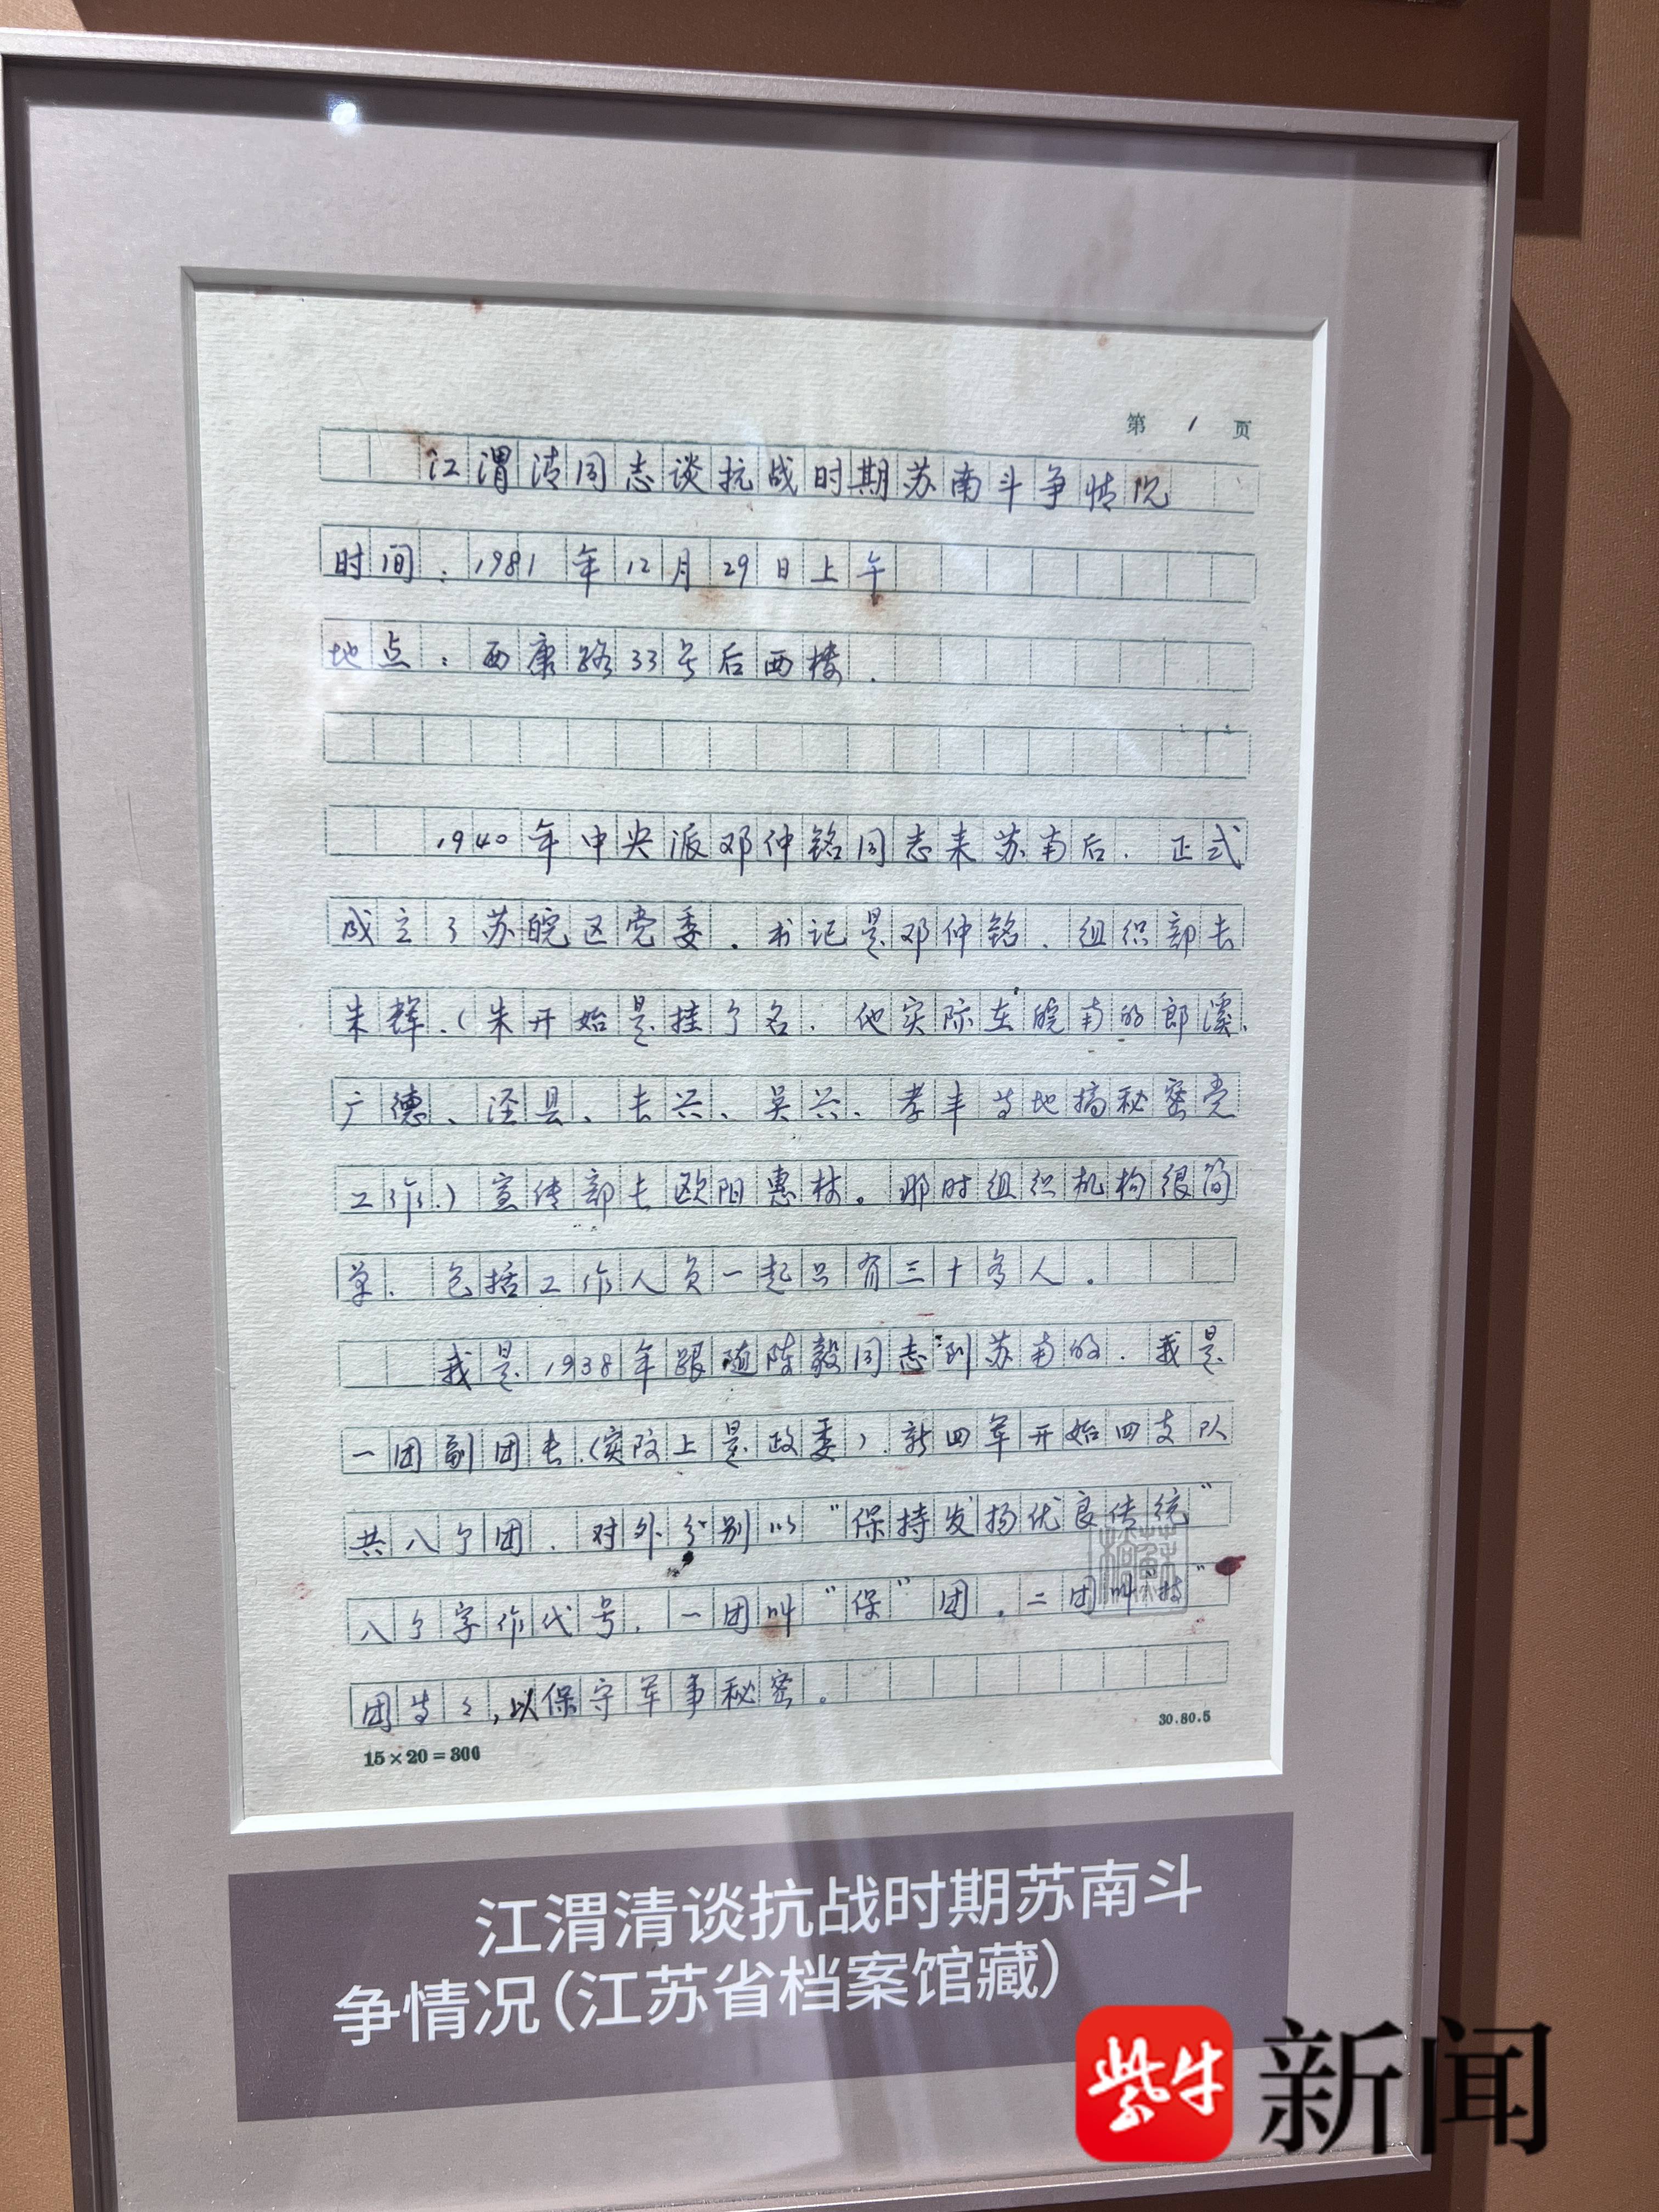 第 1 页
江渭清同志谈抗战时期苏南斗争情况
时间：1981年12月29日上午
地点：西康路33号后西楼.
1940年中央派邓仲铭同志来苏南后．正式
成立了苏皖区党委．书记是邓仲铭．组织部长
朱辉.（朱开始是挂了名．他实际在皖南的郎溪、
广德、泾县、长兴、吴兴、孝丰等地搞秘密党
工作.）宣传部长欧阳惠林。那时组织机构很简
单．包括工作人员一起只有三十多人．
我是1938年跟随陈毅同志到苏南的．我是
一团副团长.（实际上是政委）．新四军开始四支队
共八个团．对外分别以“保持发扬优良传统”
八个字作代号．一团叫“保”团．二团叫“持”
团等々，以保守军事秘密。
15×20=300
30.80.5
江渭清谈抗战时期苏南斗
争情况（江苏省档案馆藏）
紫牛新闻